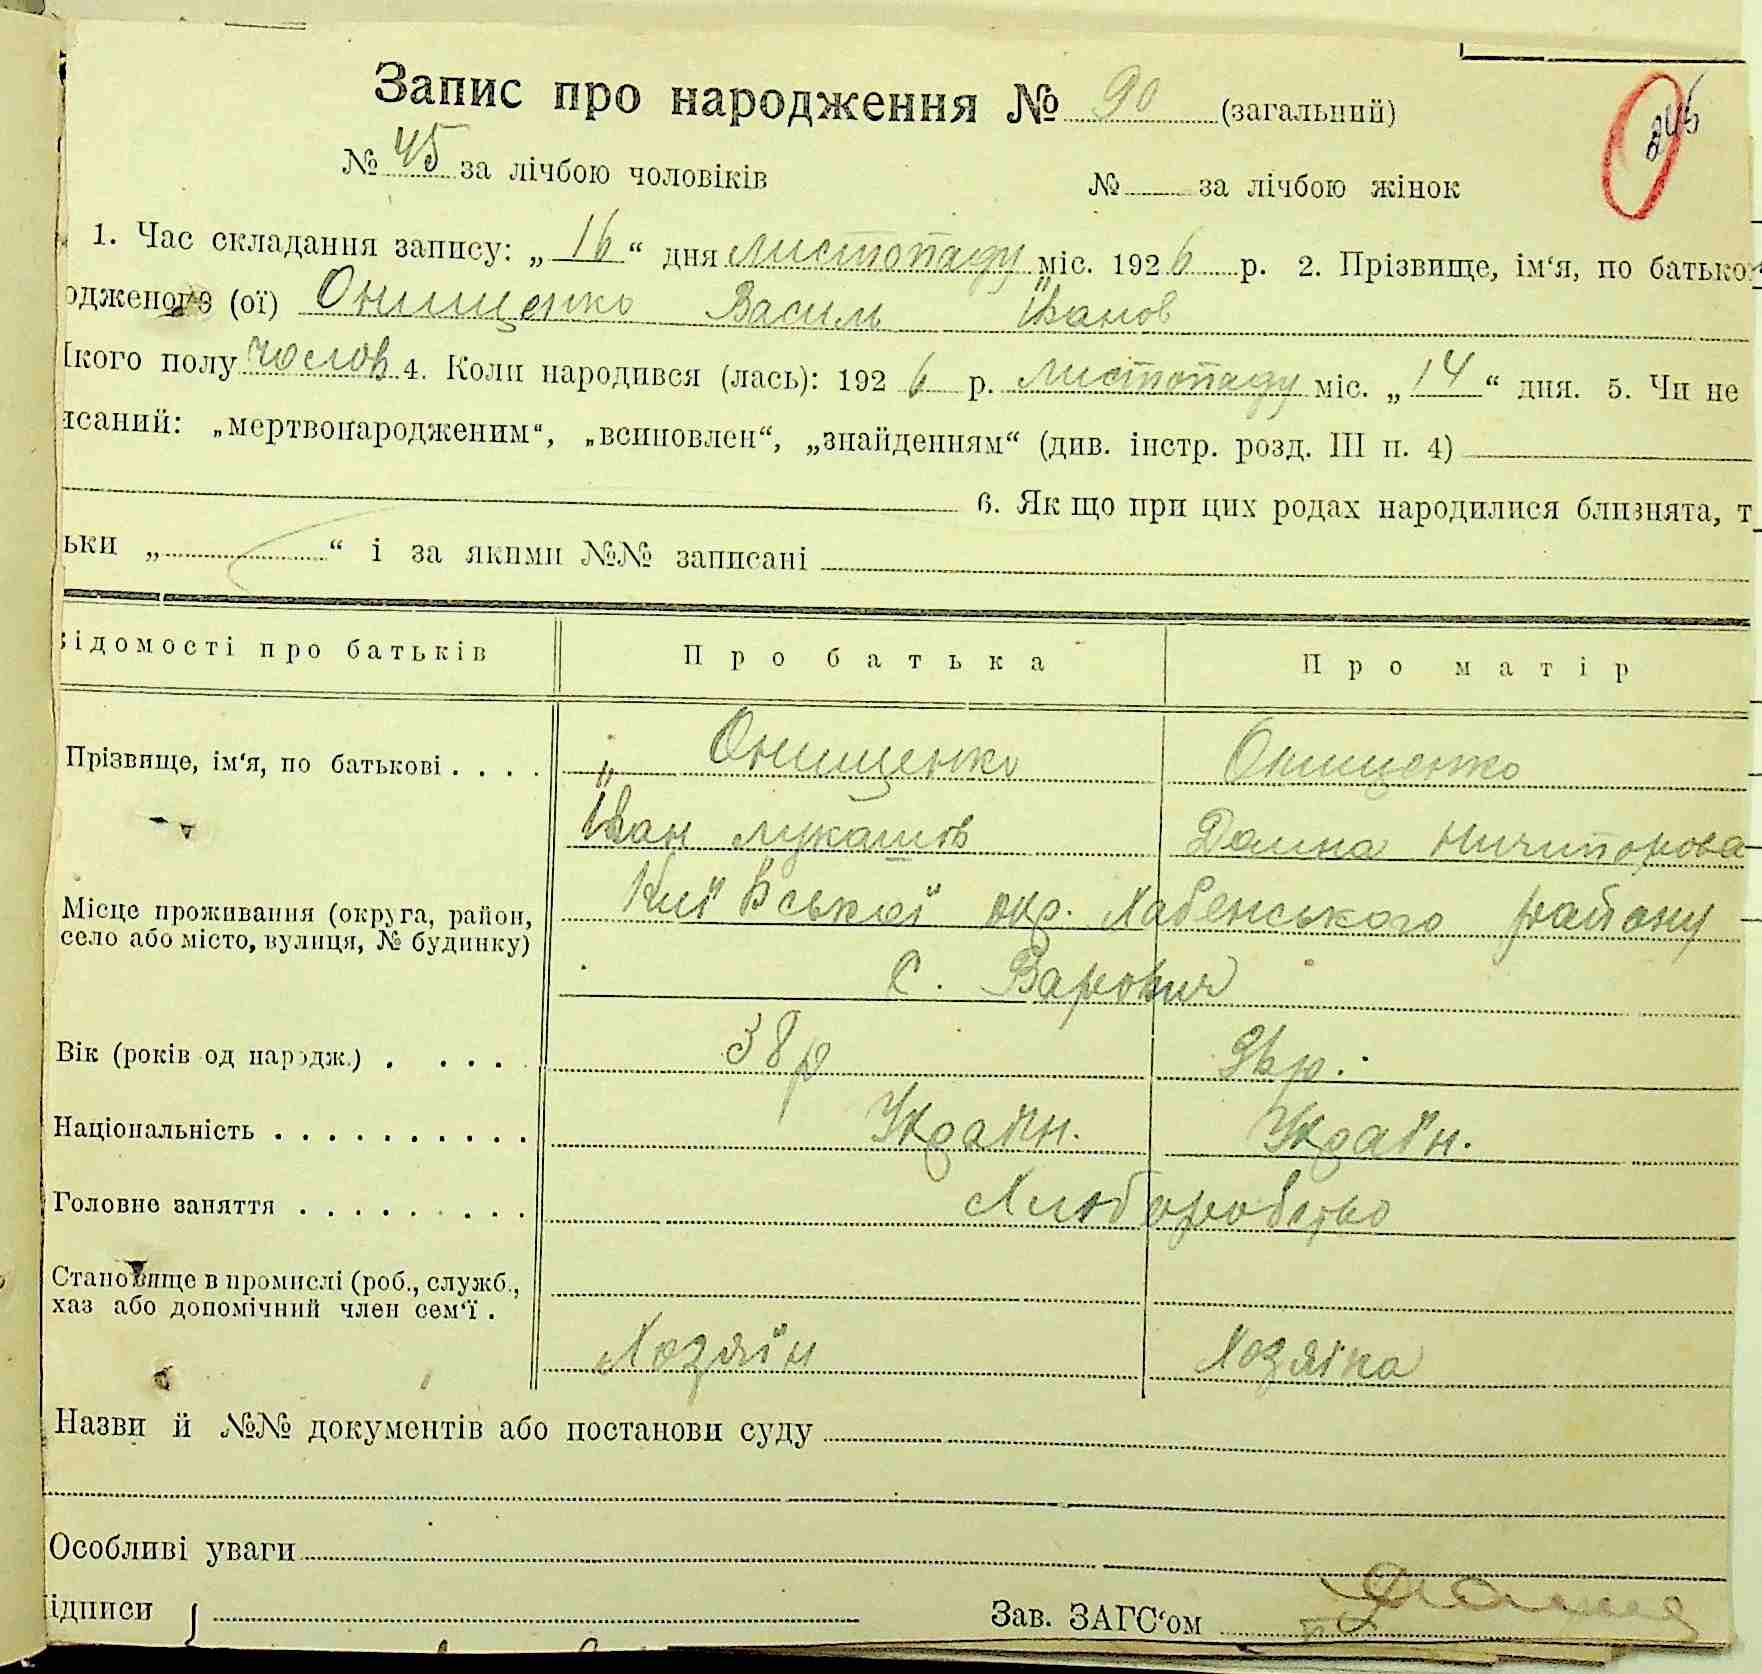 Запис про народження № 90 (загальний)
№ 45 за лічбою чоловіків № за лічбою жінок
1. Час складання запису: „ 16 “ дня листопаду міс. 1926 р. 2. Прізвище, ім‘я, по батько
одженого (ої) Онищенко Василь Іванов
кого полу чолов 4. Коли народився (лась): 1926 р. листопаду міс. „ 14 “ дня. 5. Чи не
исаний: „мертвонародженим“, „всиновлен“, „знайденням“ (див. інстр. розд. III п. 4)
6. Як що при цих родах народилися близнята, т
ьки „ “ і за якими №№ записані
ідомості про батьків Про батька Про матір
Прізвище, ім‘я, по батькові . . . . Онищенко Онищенко
Іван Лукашов Домна Ничипорова
Місце проживання (округа, район, село або місто, вулиця, № будинку) Київської окр. Хабенського району
с. Варовичі
Вік (років од народж.) . . . . 38 р р.
Національність . . . . . . . . . . Україн. Україн.
Головне заняття . . . . . . . . . Хліборобство
Становище в промислі (роб., служб.,
хаз або допомічний член сем‘ї .
Хозяїн Хозяїка
Назви й №№ документів або постанови суду
Особливі уваги
ідписи Зав. ЗАГС‘ом